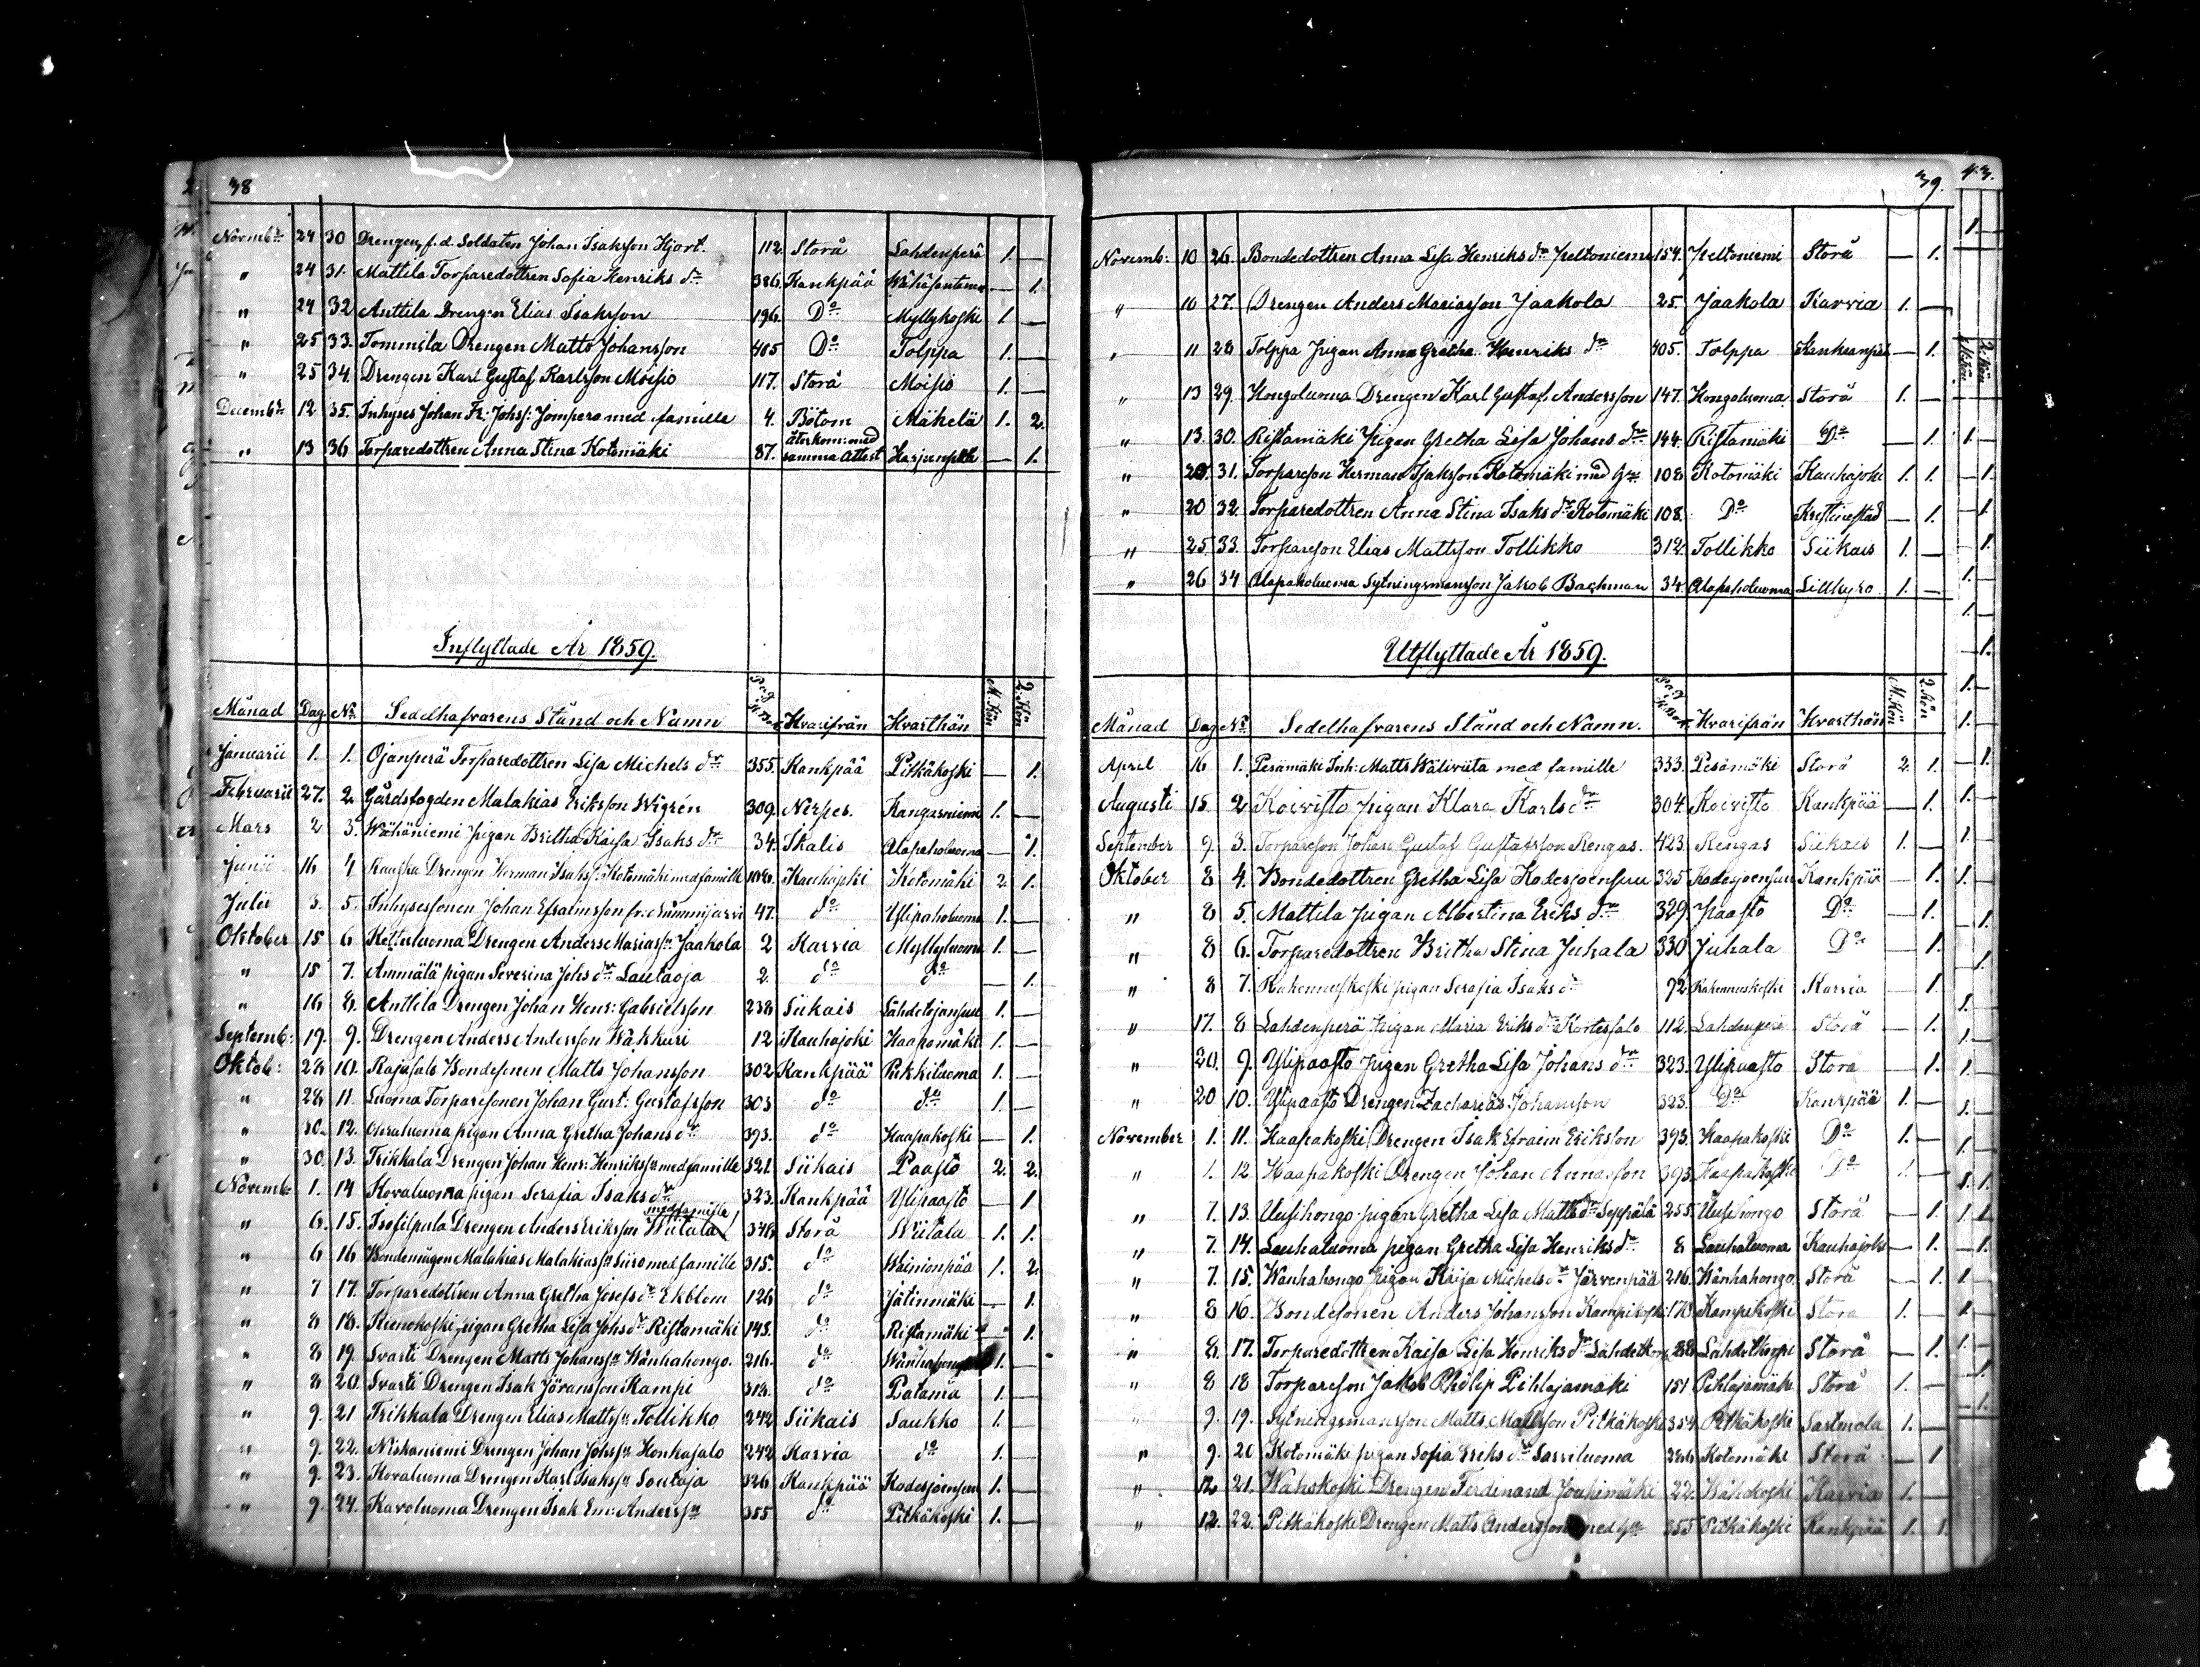 38
Novemb: 24 30 Drengen, f.d. Soldaten Johan Isaksson Hjort. 112. Storå Lahdenperä 1. —
" 24 31. Mattila Torparedottren Sofia Henriks dr 386. Kankpää — 1.
" 24 32 Anttila Drengen Elias Isaksson 196. Do Myllykoski 1. —
" 25 33. Tommila Drengen Matts Johansson 405 Do Tolppa 1. —
" 25 34. Drengen Karl Gustaf Karlsson Moisio 117. Storå Moisio 1. —
Decemb: 12 35. Inhyses Johan Fr: Johs: Jompero med famille 4. Bötom Mäkelä 1. 2.
" 13 36 Torparedottren Anna Stina Kotomäki 87. återkom: med samma attest Harjunpää — 1.
Inflyttade År 1859.
Månad Dag No Sedelhafvarens Stånd och Namn Pag. Hvarifrån Hvarthän M. Kön Q. Kön
Januarii 1. 1. Ojanperä Torparedottren Lisa Michels dr 355. Kankpää Pitkäkoski — 1.
Februarii 27. 2. Gårdsfogden Malakias Eriksson Wigrén 309. Nerpes. Kangasniemi 1. —
Mars 2 3. Wähäniemi pigan Britha Kaisa Isaks dr 34. Ikalis Alapaholuoma — 1.
Junii 16 4 Drengen Herman Isaks: Kotomäki med famille 108. Kauhajoki Kotomäki 2. 1.
Julii 3. 5. Inhysessonen Johan Efraimsson fr. Nummijärvi 47. do Ylipaholuoma 1. —
Oktober 15 6 Ketturluoma Drengen Anders Marias: Jaakola 2 Karvia Myllyluoma 1. —
" 15 7. Ammälä pigan Severina Johs dr Lautaoja 2. do do — 1.
" 16 8. Anttila Drengen Johan Henr: Gabrielsson 238 Siikais Lähdetojansuu 1. —
Septemb: 19. 9. Drengen Anders Andersson Wäkkuri 12 Kauhajoki Haapamäki 1. —
Oktob: 28 10. Rajasalo Bondesonen Matts Johansson 302 Kankpää Pukkiluoma 1. —
" 28 11. Luoma Torparesonen Johan Gust: Gustafsson 303 do do 1. —
" 30. 12. Ohraluoma pigan Anna Gretha Johans dr 393. do Haapakoski — 1.
" 30. 13. Trikkala Drengen Johan Henr: Henrikss: med famille 321 Siikais Paasto 2. 2.
Novemb: 1. 14 Kovaluoma pigan Serafia Isaks dr 323. Kankpää Ylipaasto — 1
" 6. 15. Drengen Anders Eriksson Wiitala med famille 348 Storå Wiitala 1. 1.
" 6 16 Bondemågen Malakias Malakiass: Siiro med famille 315. do Wäinionpää 1. 2.
" 7 17. Torparedottren Anna Gretha Josefs dr Ekblom 126 do Jätinmäki — 1.
" 8 18. Kienokoski pigan Gretha Lisa Johs dr Ristamäki 143. do Ristamäki — 1.
" 8 19. Svarti Drengen Matts Johanss: Wanhahongo. 216. do Wanhahongo 1. —
" 8 20. Svarti Drengen Isak Jöransson Kampi 318. do Patana 1. —
" 9. 21 Trikkala Drengen Elias Mattss: Tollikko 242 Siikais Saukko 1. —
" 9. 22. Niskaniemi Drengen Johan Johss: Honkasalo 242 Karvia do 1. —
" 9. 23. Kovaluoma Drengen Karl Isakss: Soutaja 326 Kankpää Kodesjoensuu 1. —
" 9. 24. Karoluoma Drengen Isak Em: Anderss: 355 do Pitkäkoski 1. —
39.
Novemb: 10 26. Bondedottren Anna Lisa Henriks dr Peltoniemi 154. Peltoniemi Storå — 1.
" 10 27. Drengen Anders Mariasson Jaakola 25. Jaakola Karvia 1. —
" 11 28 Tolppa Pigan Anna Gretha Henriks dr 405. Tolppa Kankaanpää — 1.
" 13 29. Hongoluoma Drengen Karl Gustaf Andersson 147. Hongoluoma Storå 1. —
" 13. 30. Ristamäki Pigan Gretha Lisa Johans dr 144. Ristamäki Do — 1.
" 20. 31. Torpareson Herman Isaksson Kotomäki med 108 Kotomäki Kauhajoki 1. 1.
" 20 32. Torparedottren Anna Stina Isaks dr Kotomäki 108. Do Kristinestad — 1.
" 25 33. Torpareson Elias Mattsson Tollikko 312. Tollikko Siikais 1. —
" 26 34 Alapaholuoma Sytningsmansson Jakob Bachman 34. Alapaholuoma Lillkyro 1. —
Utflyttade År 1859.
Månad Dag No Sedelhafvarens Stånd och Namn. Pag. Hvarifrån Hvarthän M. Kön Q. Kön
April 16 1. Pesämäki Inh: Matts Wäliviita med famille 333. Pesämäki Storå 2. 1.
Augusti 15 2 Koivisto pigan Klara Karls dr 304. Koivisto Kankpää — 1.
September 9. 3. Torpareson Johan Gustaf Gustafsson Rengas. 423. Rengas Siikais 1. —
Oktober 8 4. Bondedottren Gretha Lisa Kodesjoensuu 325 Kodesjoensuu Kankpää — 1.
" 8 5. Mattila Pigan Albertina Eriks dr 329. Paasto Do — 1.
" 8 6. Torparedottren Britha Stina Juhala 330 Juhala Do — 1.
" 8 7. Rahennuskoski pigan Serafia Isaks dr 72 Rahennuskoski Karvia — 1.
" 17. 8 Lahdenperä Pigan Maria Eriks dr Kortessalo 112. Lahdenperä Storå — 1.
" 20. 9. Ylipaasto pigan Gretha Lisa Johans dr 323. Ylipaasto Stora — 1.
" 20 10. Ylipaasto Drengen Zacharias Johansson 323. Do Kankpää 1. —
November 1. 11. Haapakoski Drengen Isak Efraim Eriksson 393. Haapakoski Do 1. —
" 1. 12 Haapakoski Drengen Johan Annasson 393 Haapakoski Do 1. —
" 7. 13. Uusihongo pigan Gretha Lisa Matts dr Seppälä 255 Uusihongo Storå — 1.
" 7. 14. Lauhaluoma pigan Gretha Lisa Henriks dr 8 Lauhaluoma Kauhajoki — 1.
" 7. 15. Wanhahongo Pigan Kaisa Michels dr Järvenpää 216. Wanhahongo Storå — 1.
" 8 16. Bondesonen Anders Johansson Kampikoski 178 Kampikoski Stora 1. —
" 8. 17. Torparedottren Kaisa Lisa Henriks dr 88 Storå — 1.
" 8 18 Torpareson Jakob Philip Pihlajamäki 151 Pihlajamäki Storå 1. —
" 9. 19. Sytningsmansson Matts Mattsson Pitkäkoski 354 Pitkäkoski Sastmola 1. —
" 9. 20 Kotomäki pigan Sofia Eriks dr Sarviluoma 286 Kotomäki Storå — 1
" 12 21. Wahokoski Drengen Ferdinand Jouhimäki 22. Wähokoski Karvia 1. —
" 12. 22. Pitkäkoski Drengen Matts Andersson med 355 Pitkäkoski Kankpää 1. 1.
43.